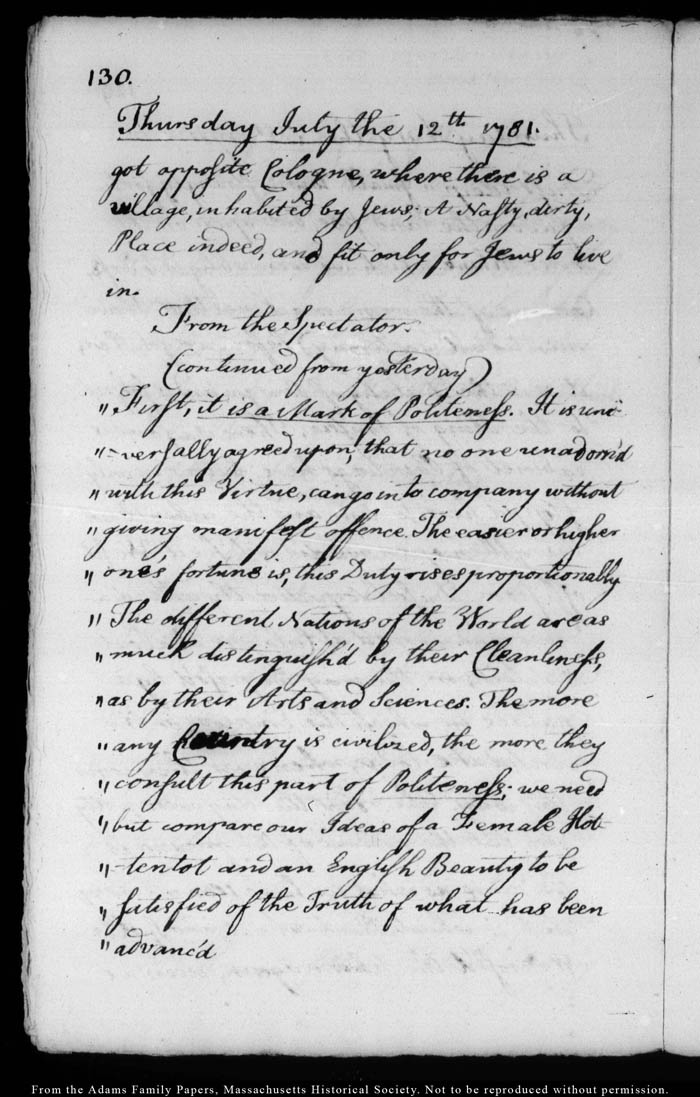 130.
Thursday July the 12th. 1781.
got opposite Cologne, where there is a
village, inhabited by Jews; A Nasty, dirty,
Place indeed, and fit only for Jews to live
in.
From the Spectator.
(continued from yesterday)
" First, it is a Mark of Politeness. It is uni-
" -versally agreed upon, that no one unadorn'd
" with this Virtue, can go into company without
" giving manifest offence. The easier or higher
" one's fortune is, this Duty rises proportionally
" The different Nations of the World are as
" much distinguish'd by their Cleanliness,
" as by their Arts and Sciences. The more
" any Country is civilized, the more they
" consult this part of Politeness; we need
" but compare our Ideas of a Female Hot-
" -tentot and an English Beauty to be
" satisfied of the Truth of what has been
" advanc'd
From the Adams Family Papers, Massachusetts Historical Society. Not to be reproduced without permission.